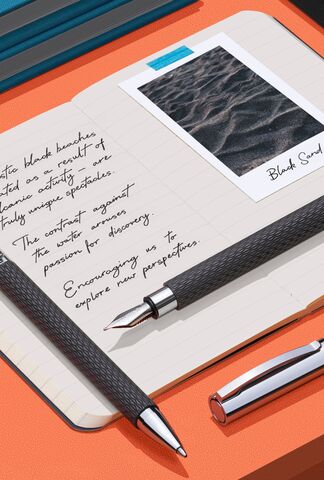 black beaches
as a result of
activity – are
truly unique spectacles.
The contrast against
the water arouses
passion for discovery.
Encouraging us to
explore new perspectives.
Black Sand